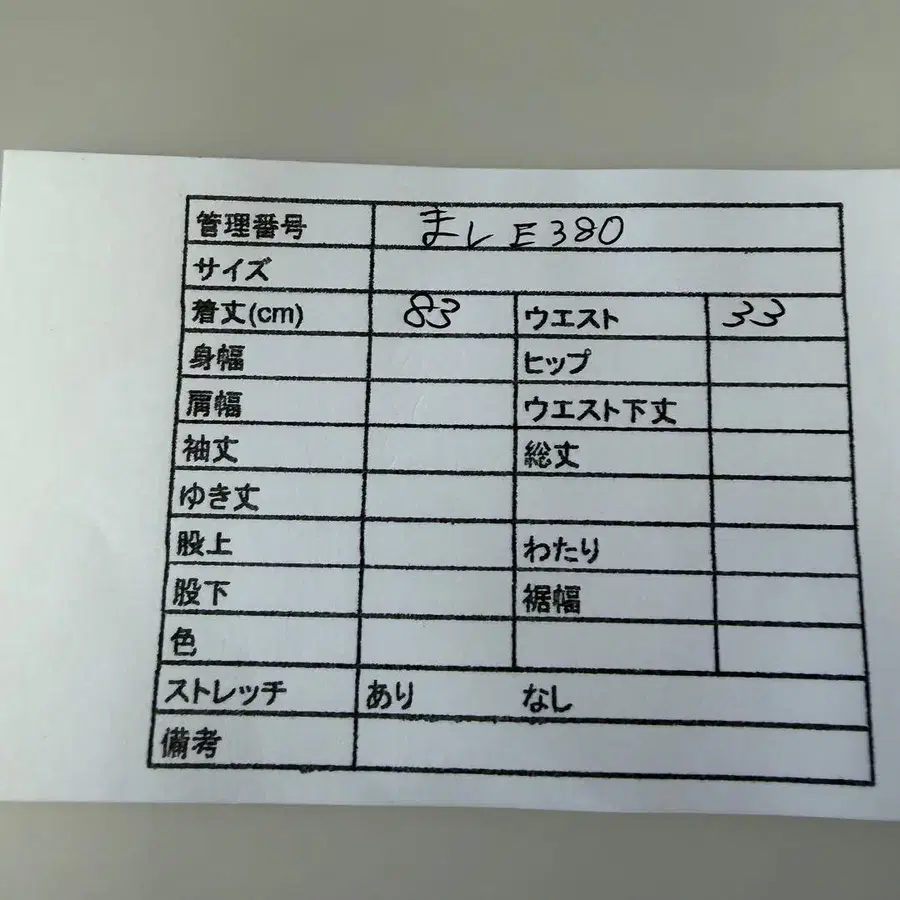 管理番号 まレE380
サイズ
着丈(cm) 83 ウエスト 33
身幅 ヒップ
肩幅 ウエスト下丈
袖丈 総丈
ゆき丈
股上 わたり
股下 裾幅
色
ストレッチ あり なし
備考